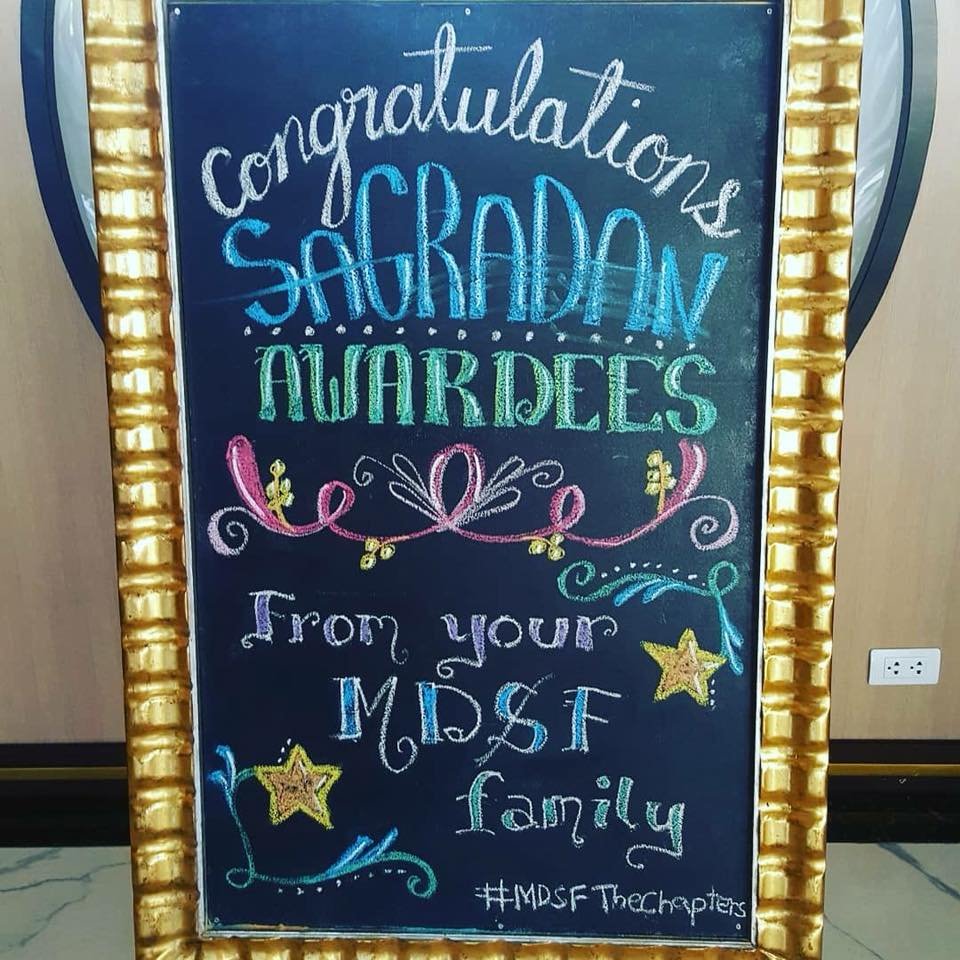 Congratulations
SAGRADAN
AWARDEES
From your
MDSF
family
#MDSFTheChapters